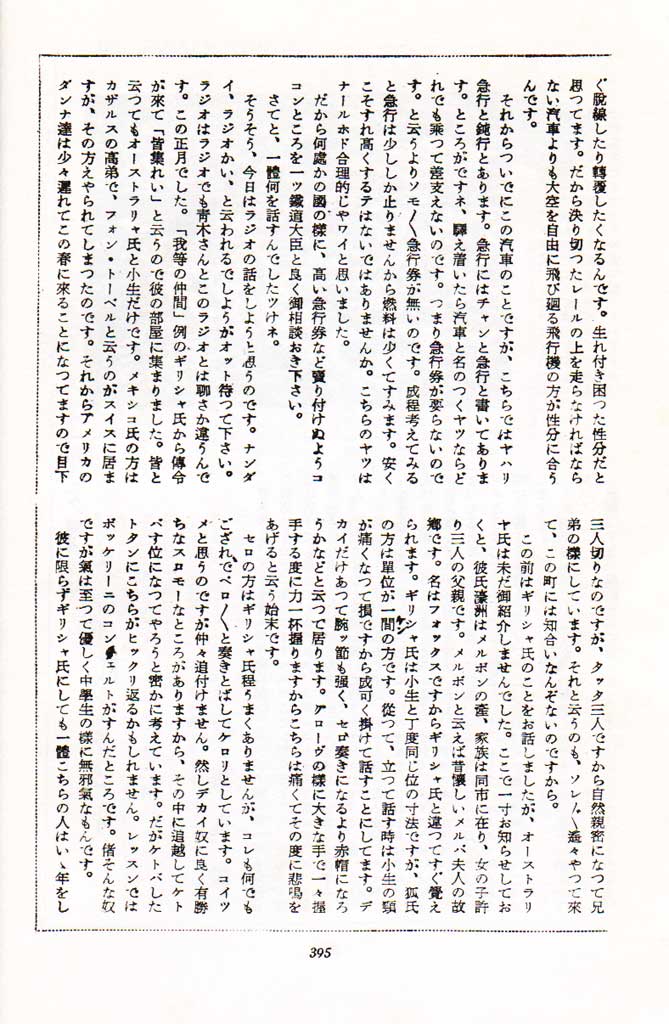 ぐ脫線したり轉覆したくなるんです。生れ付き困つた性分だと
思つてます。だから決り切つたレールの上を走らなければなら
ない汽車よりも大空を自由に飛び廻る飛行機の方が性分に合う
んです。
それからついでにこの汽車のことですが、こちらではヤハリ
急行と鈍行とあります。急行にはチャンと急行と書いてありま
す。ところがですネ、驛え着いたら汽車と名のつくヤツならど
れでも乘つて差支えないのです。つまり急行券が要らないので
す。と云うよりソモ〳〵急行券が無いのです。成程考えてみる
と急行は少ししか止りませんから燃料は少くてすみます。安く
こそすれ高くするテはないではありませんか。こちらのヤツは
ナールホド合理的じやワイと思いました。
だから何處かの國の樣に、高い急行券など賣り付けぬようコ
コンところを一ツ鐵道大臣と良く御相談おき下さい。
さてと、一體何を話すんでしたツけネ。
そうそう、今日はラジオの話をしようと思うのです。ナンダ
イ、ラジオかい、と云われるでしようがオット待つて下さい。
ラジオはラジオでも靑木さんとこのラジオとは聊さか違うんで
す。この正月でした。「我等の仲間」例のギリシャ氏から傳令
が來て「皆集れい」と云うので彼の部屋に集まりました。皆と
云つてもオーストラリャ氏と小生だけです。メキシコ氏の方は
カザルスの高弟で、フォン・トーベルと云うのがスイスに居ま
すが、その方えやられてしまつたのです。それからアメリカの
ダンナ達は少々遲れてこの春に來ることになつてますので目下
三人切りなのですが、タッタ三人ですから自然親密になつて兄
弟の樣にしています。それと云うのも、ソレ〳〵遙々やつて來
て、この町には知合いなんぞないのですから。
この前はギリシャ氏のことをお話しましたが、オーストラリ
ヤ氏は未だ御紹介しませんでした。ここで一寸お知らせしてお
くと、彼氏濠洲はメルボンの產、家族は同市に在り、女の子許
り三人の父親です。メルボンと云えば昔懷しいメルバ夫人の故
鄕です。名はフォックスですからギリシャ氏と違つてすぐ覺え
られます。ギリシャ氏は小生と丁度同じ位の寸法ですが、狐氏
の方は單位が一間の方です。從つて、立つて話す時は小生の頸
が痛くなつて損ですから成可く掛けて話すことにしてます。デ
カイだけあつて腕ッ節も强く、セロ奏きになるより赤帽になろ
うかなどと云つて居ります。グローヴの樣に大きな手で一々握
手する度に力一杯握りますからこちらは痛くてその度に悲鳴を
あげると云う始末です。
セロの方はギリシャ氏程うまくありませんが、コレも何でも
ござれでペロ〳〵と奏きとばしてケロリとしています。コイツ
メと思うのですが仲々追付けません。然しデカイ奴に良く有勝
ちなスロモーなところがありますから、その中に追越してケト
バす位になつてやろうと密かに考えています。だがケトバした
トタンにこちらがヒックリ返るかもしれません。レッスンでは
ボッケリーニのコンチェルトがすんだところです。偖そんな奴
ですが氣は至つて優しく中學生の樣に無邪氣なもんです。
彼に限らずギリシャ氏にしても一體こちらの人はいゝ年をし
395